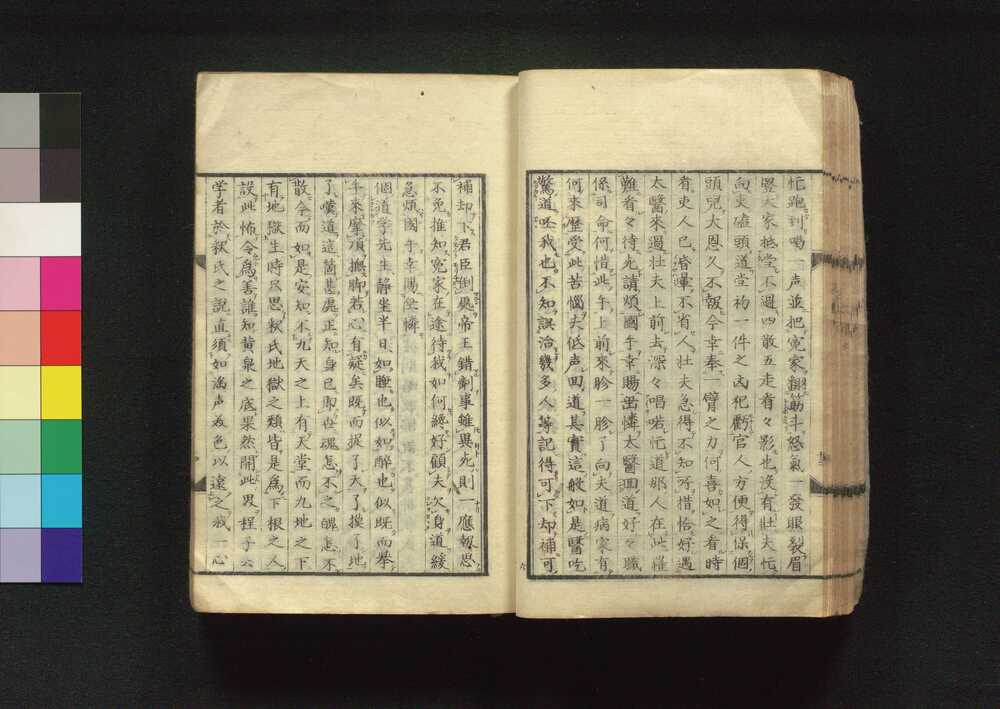 忙跑到喝一声並把寃家翻筋斗怒氣一發眼裂眉
竪大家抵堂不過四散五走看々影也没有壮夫忙
向夫磕頭道堂初一件之凶犯勸官人方便得保個
頭兒大恩久不報今幸奉一臂之力何喜如之看時
者吏人已昏暈不省人壮夫急得不知所措恰好遇
太醫来過壮夫上前去深々唱喏忙道那人在此罹
難者々待先請煩國手幸賜出憐太醫回道好々職
係司命何惜此手上前来胗一胗了向夫道病家有
何来歴受此苦惱夫低声回道其實這般如是醫吃
驚道呸我也不知誤治幾多人等記得可下却補可
補却下君臣倒處帝王錯劑事雖異先則一應報思
不免推知寃家在途待我如何纏好顧夫欠身道緩
急煩國手幸賜坐憐
個道学先生静坐半日如睡也似如醉也似既而挙
手来摩頂撫脚若心有疑矣既而捉了天了挨了地
了嘆道這箇甚處正知身已即世魂怎不之魄怎不
散今而如是安知不九天之上有天堂而九地之下
有地獄生時只思釈氏地獄之類皆是為下根之人
設此怖令為善誰知黄泉之底果然開此界程子云
学者於釈氏之説直須如滛声美色以遠之我一心
六